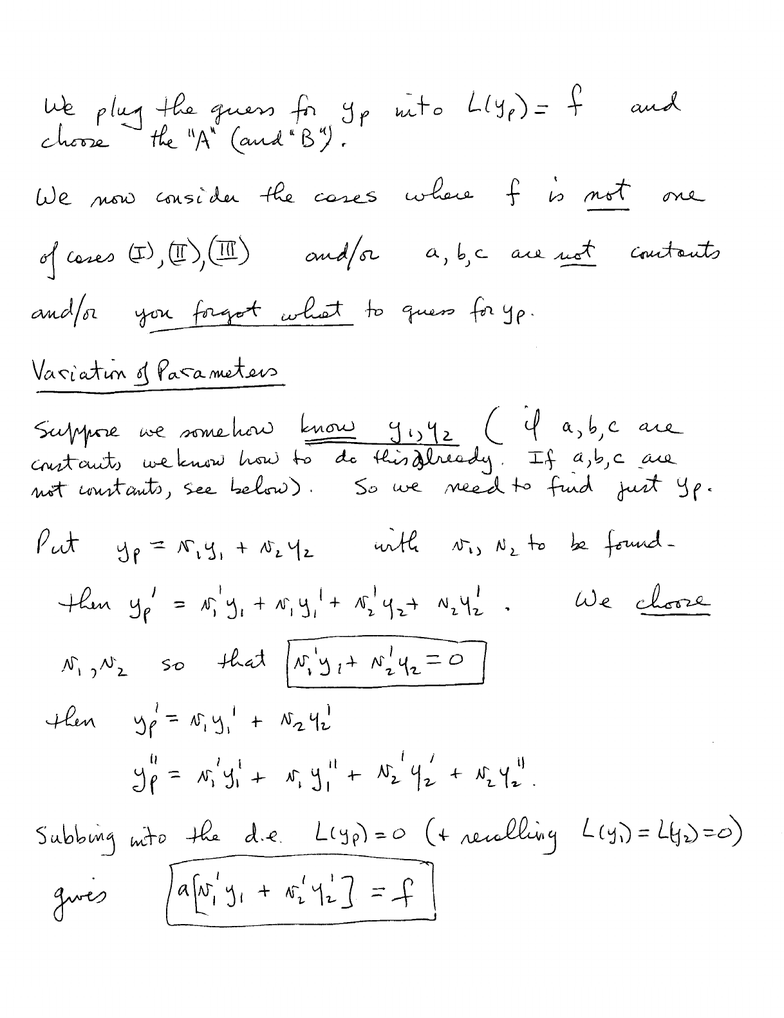 We plug the guess for yₚ into L(yₚ) = f and
choose the "A" (and "B").
We now consider the cases where f is not one
of cases (I), (II), (III) and/or a, b, c are not constants
and/or you forgot what to guess for yₚ.
Variation of Parameters
Suppose we somehow know y₁, y₂ ( if a, b, c are
constants we know how to do this already. If a, b, c are
not constants, see below). So we need to find just yₚ.
Put yₚ = v₁y₁ + v₂y₂ with v₁, v₂ to be found.
then yₚ' = v₁'y₁ + v₁y₁' + v₂'y₂ + v₂y₂' . We choose
v₁, v₂ so that v₁'y₁ + v₂'y₂ = 0
then yₚ' = v₁y₁' + v₂y₂'
yₚ'' = v₁'y₁' + v₁y₁'' + v₂'y₂' + v₂y₂''.
Subbing into the d.e. L(yₚ) = 0 (+ recalling L(y₁) = L(y₂) = 0)
gives a[v₁'y₁ + v₂'y₂'] = f